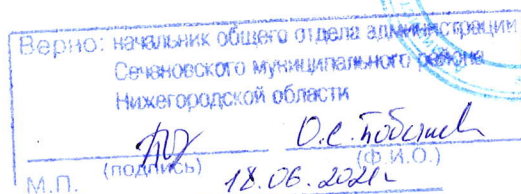 Верно: начальник общего отдела администрации
Сеченовского муниципального района
Нижегородской области
О.С.
(подпись) (Ф.И.О.)
М.П. 18.06.2021г